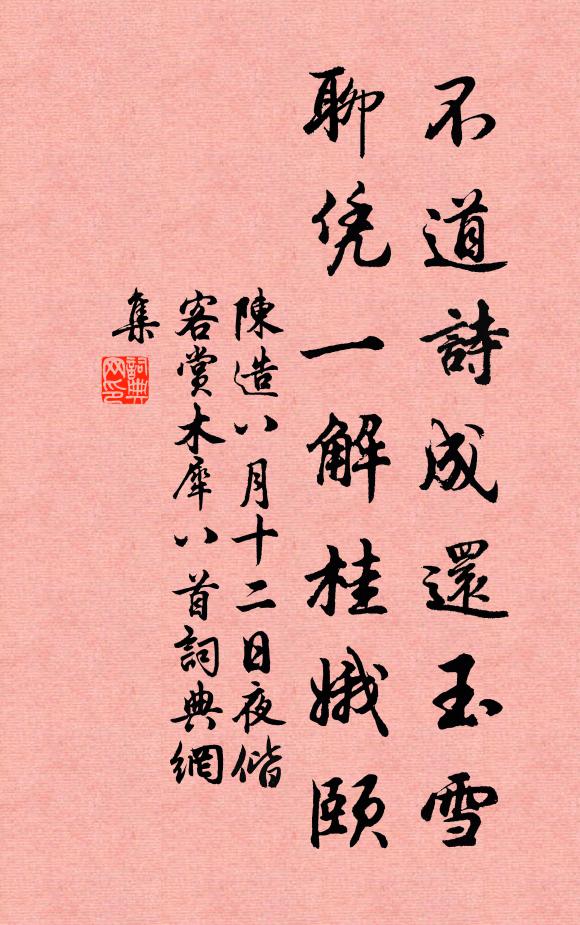 不道詩成還玉雪
聊凭一解桂娥頤
陳造八月十二日夜偕
客賞木犀八首詞典網
集
詞典
网印